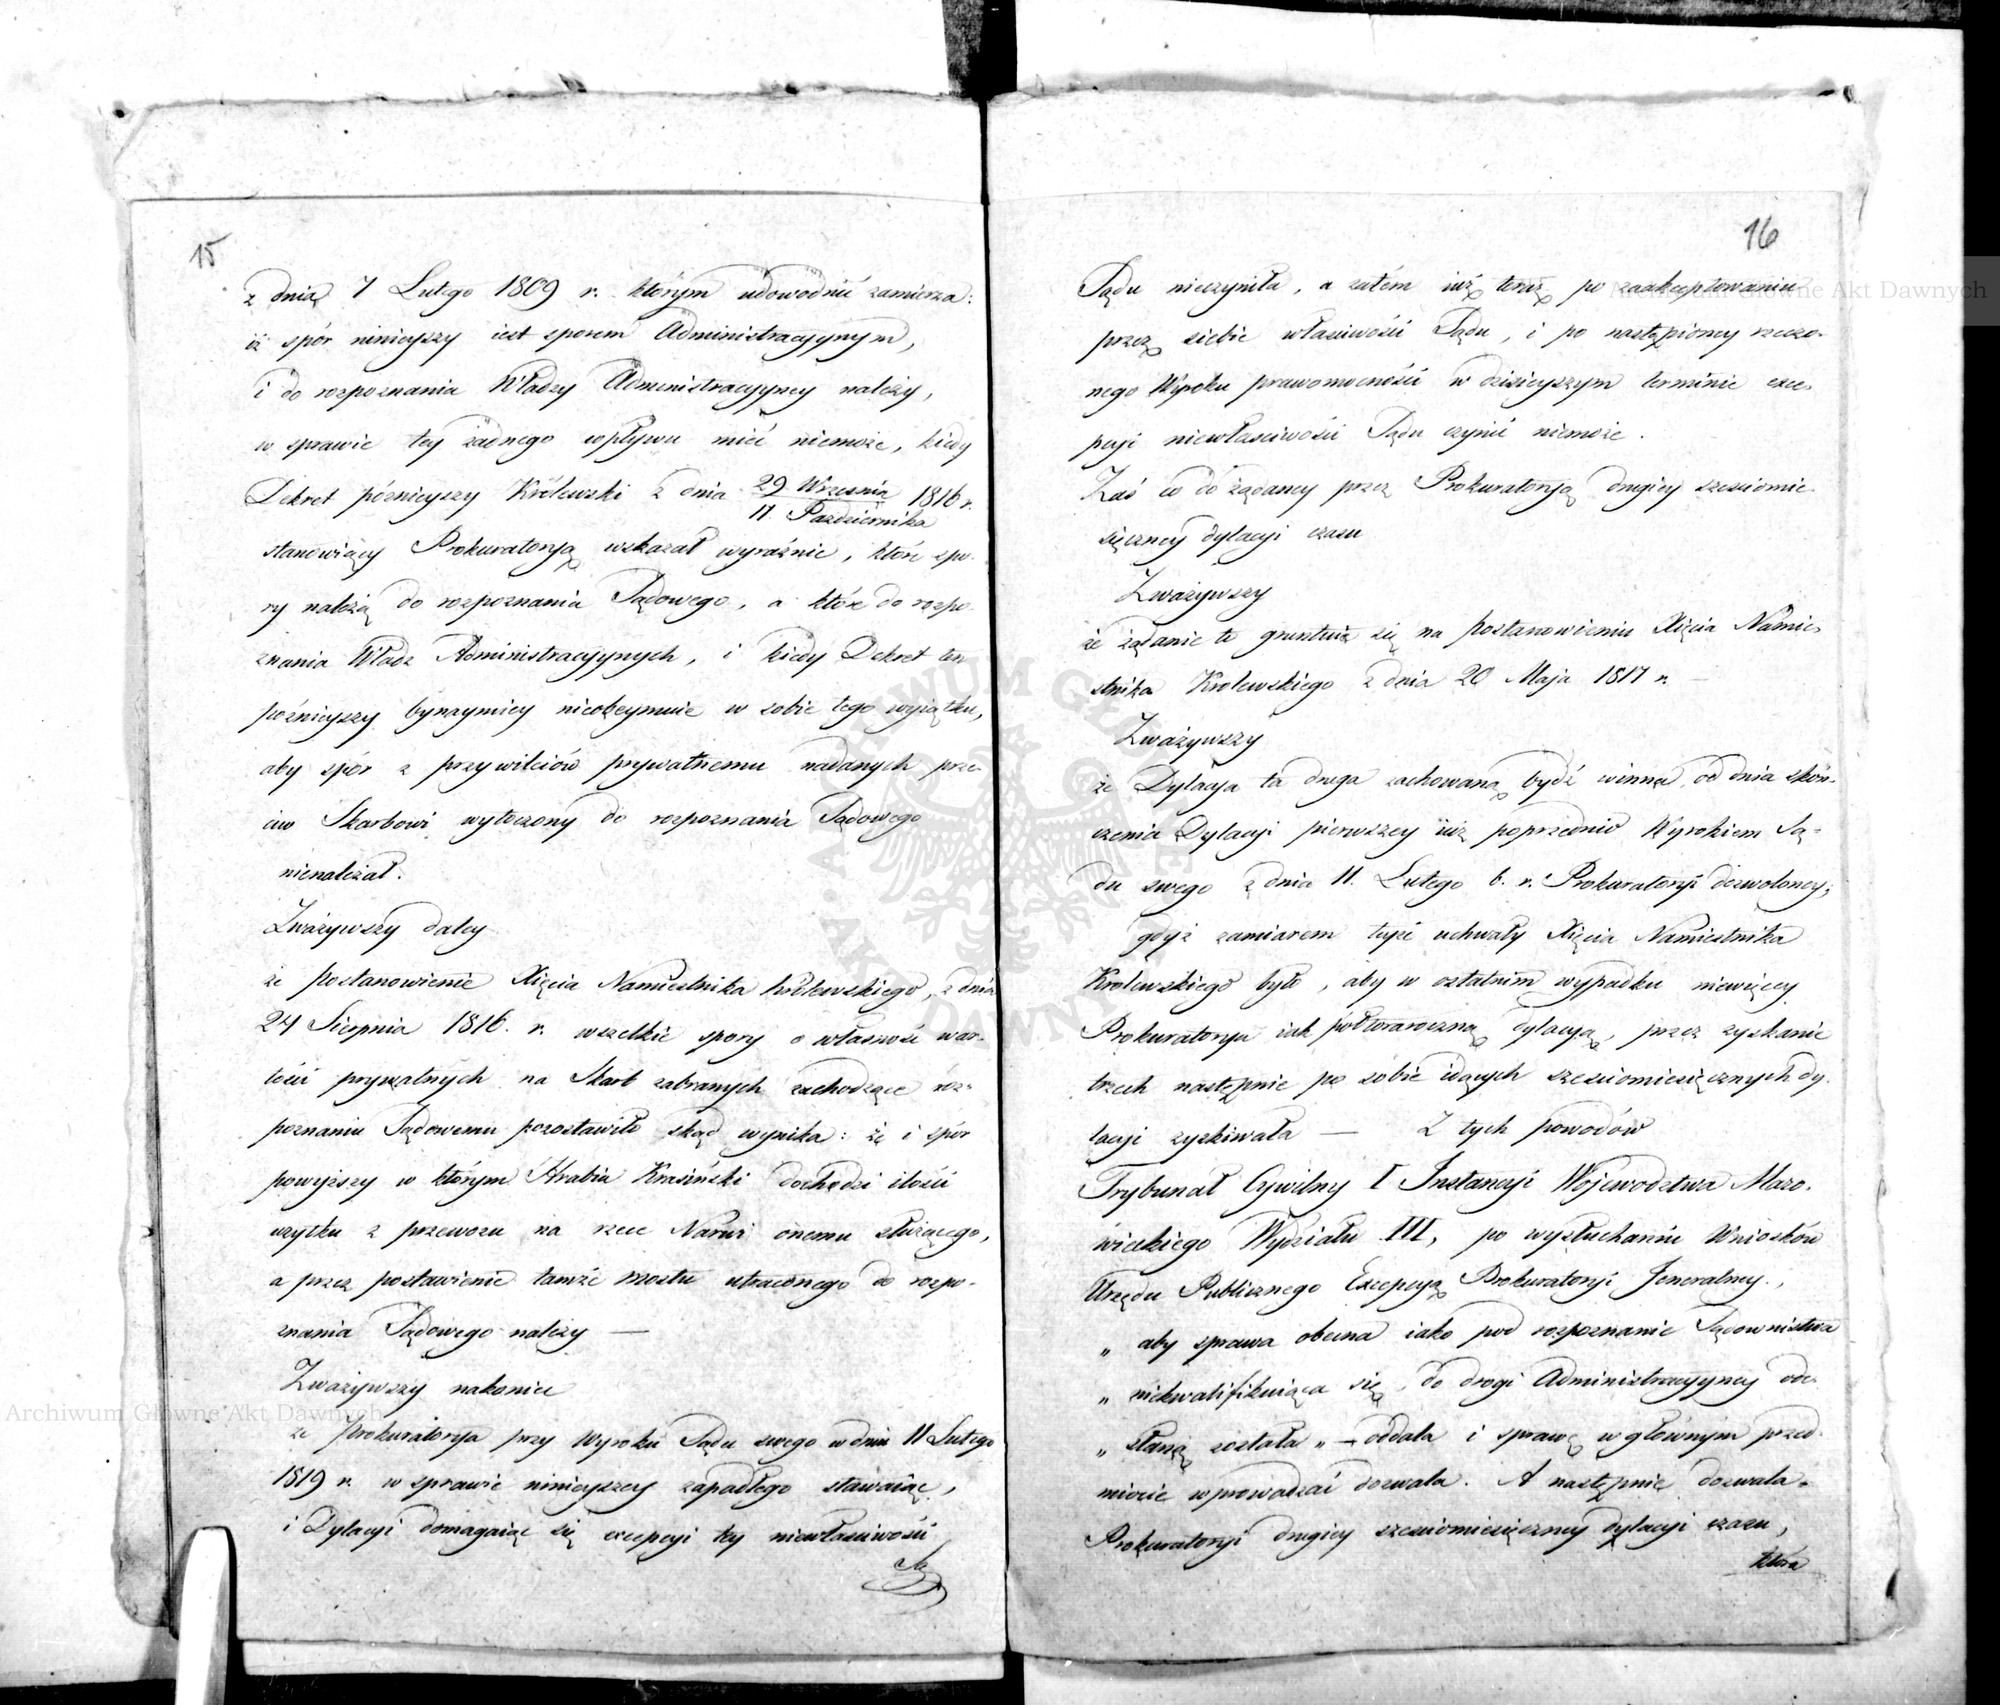 15
z dnia 7 Lutego 1809 r. którym udowodnić zamierza:
iż spór ninieyszy iest sporem Administracyynym,
i do rozpoznania Władzy Administracyyney należy,
w sprawie tey żadnego wpływu mieć niemoże, kiedy
Dekret póznieyszy Królewski z dnia 29 Wrzesnia 1816 r.
11 Pazdziernika
stanowiący Prokuratoryą wskazał wyraźnie, które spo-
ry należą do rozpoznania Sądowego, a które do rozpo-
znania Władz Administracyynych, i kiedy Dekret ten
poźnieyszy bynaymniey nieobeymuie w sobie tego wyiątku,
aby spór z przywileiów prywatnemu nadanych prze-
ciw Skarbowi wytoczony do rozpoznania Sądowego
nienależał.
Zważywszy daley
że postanowienie Xięcia Namiestnika Królewskiego, z dnia
24 Sierpnia 1816. r. wszelkie spory o własność war-
tości prywatnych na Skarb zabranych zachodzące roz-
poznaniu Sądowemu pozostawiło skąd wynika: że i spór
powyższy w którym Hrabia Krasiński dochodzi ilości
użytku z przewozu na rzece Narwi onemu służącego,
a przez postawienie tamże mostu utraconego do rozpo-
znania Sądowego należy —
Zważywszy nakoniec
że Prokuratorya przy Wyroku Sądu swego w dniu 11 Lutego
1819 r. w sprawie ninieyszey zapadłego stawaiąc,
i Dylacyi domagaiąc się excepcyi tey niewłaściwości
16
Sądu nieczyniła, a zatém iuż teraz po zaakceptowaniu
przez siebie właściwości Sądu, i po nastąpioney rzeczo-
nego Wyroku prawomocności w dzisieyszym terminie exce-
pcyi niewłaściwości Sądu czynić niemoże.
Zaś co do żądaney przez Prokuratoryą drugiey szesciomie-
sięczney dylacyi czasu
Zważywszy
że żądanie to gruntuie się na postanowieniu Xięcia Namie-
stnika Krolewskiego z dnia 20 Maja 1817 r. —
Zważywszy
że Dylacya ta druga zachowaną bydź winna, od dnia skoń-
czenia Dylacyi pierwszey iuż poprzednio Wyrokiem Są-
du swego z dnia 11. Lutego b. r. Prokuratoryi dozwoloney;
gdyż zamiarem teyże uchwały Xięcia Namiestnika
Krolewskiego było, aby w ostatnim wypadku niewięcey
Prokuratorya iak półtoraroczną dylacyą, przez zyskanie
trzech następnie po sobie idących szesciomiesięcznych dy-
lacyi zyskiwała — Z tych powodów
Trybunał Cywilny I Instancyi Województwa Mazo-
wieckiego Wydziału III, po wysłuchaniu Wniosków
Urzędu Publicznego Excepcyą Prokuratoryi Jeneralney.,
„ aby sprawa obecna iako pod rozpoznanie Sądownictwa
„ niekwalifikuiąca się, do drogi Administracyyney ode-
„ słaną została „ — oddala i sprawę w głównym przed-
miocie wprowadzać dozwala. A następnie dozwala
Prokuratoryi drugiey szesciomiesięczney dylacyi czasu,
która
Archiwum Główne Akt Dawnych